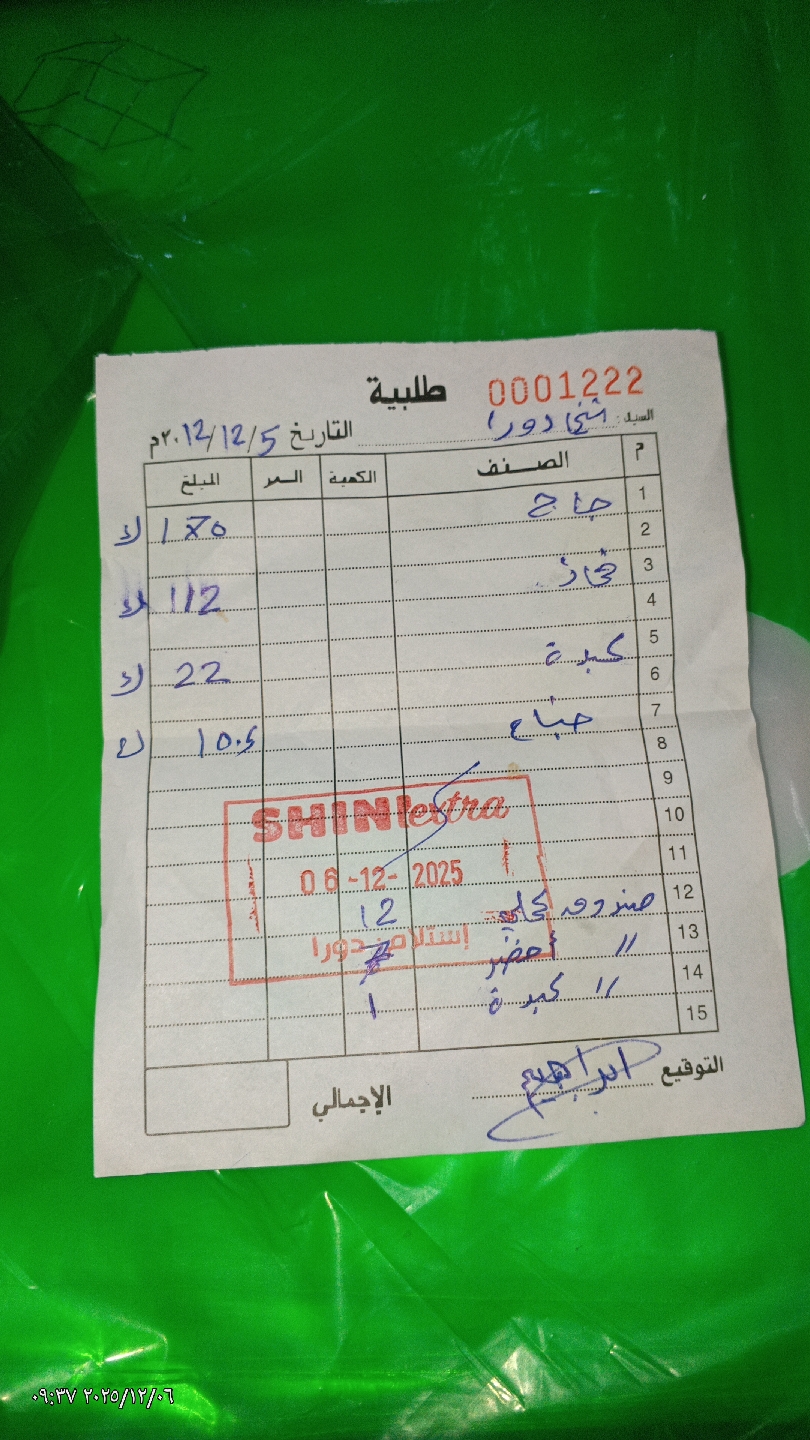 طلبية 0001222
السيد: شني دورا
التاريخ 12/12/5 ٢٠م
م الصنف الكمية السعر المبلغ
1 جاج
2 180 ك
3 فخاذ
4 112 ك
5 كبدة
6 22 ك
7 جناح
8 10.5 ك
9
10 SHINI extra
11 06-12-2025
12 صندوق كحلي 12
إستلام دورا
13 " أخضر
14 " كبدة 1
15
التوقيع ابراهيم
الإجمالي
٠٩:٣٧ ٢٠٢٥/١٢/٠٦